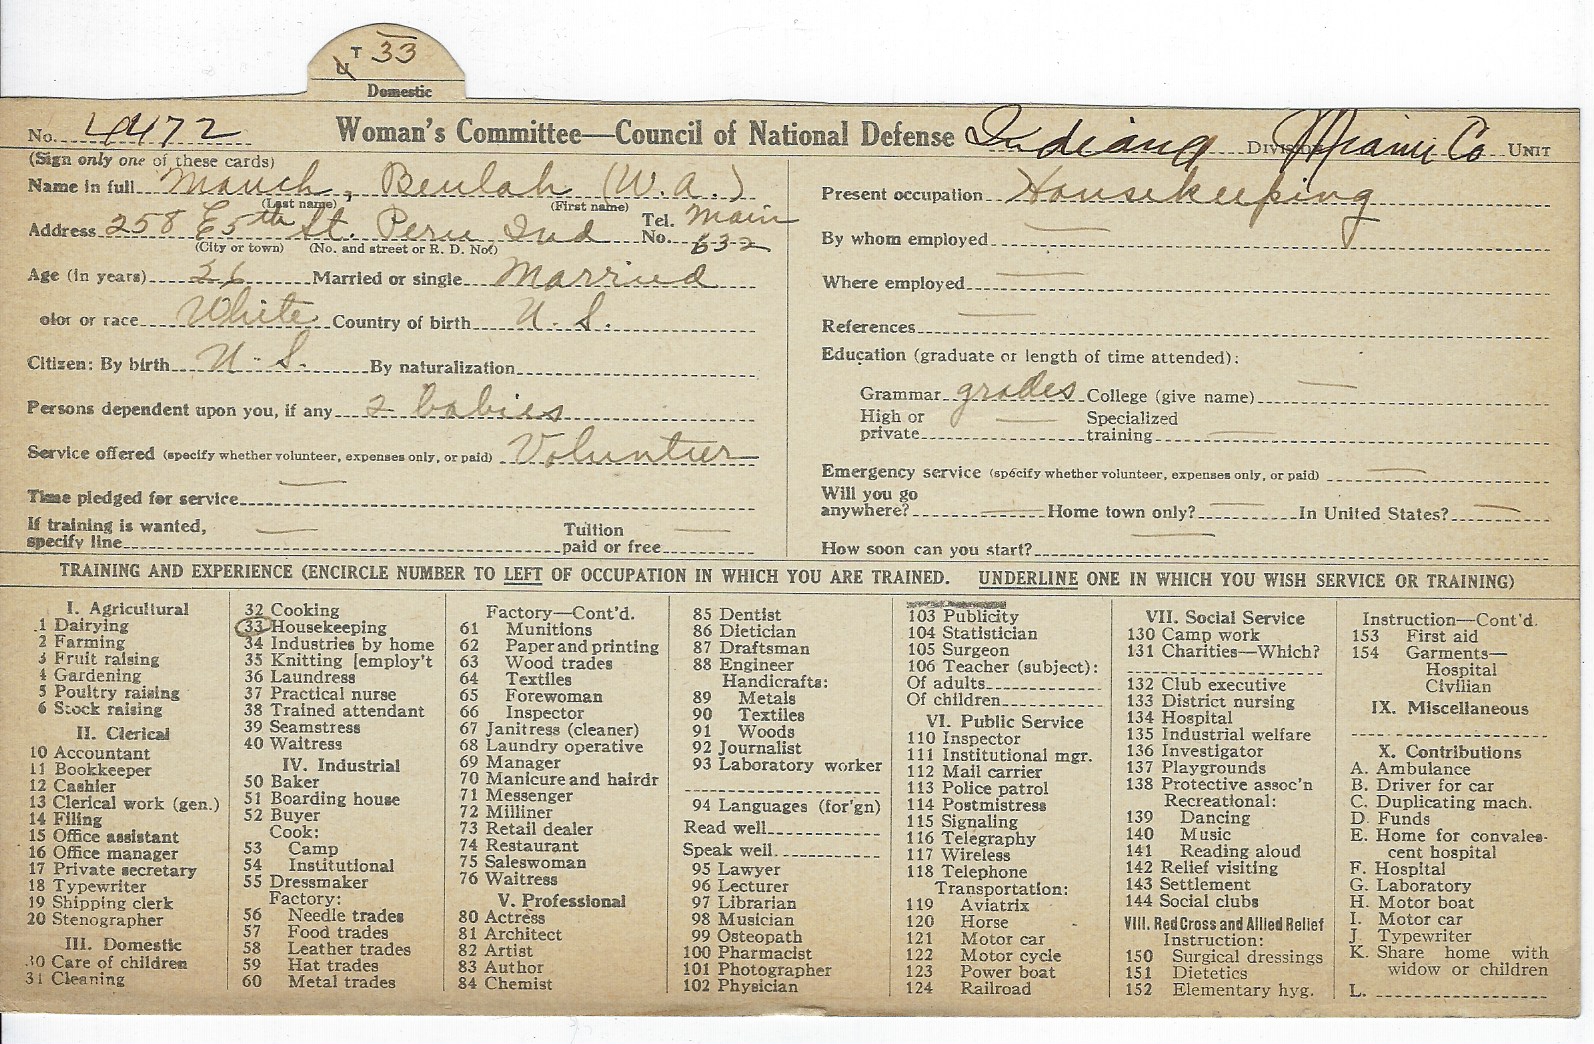 T 33
U
Domestic
No. 4472 Woman's Committee—Council of National Defense Indiana Division Miami Co UNIT
(Sign only one of these cards)
Name in full Mauch, Beulah (W.A.)
(Last name) (First name)
Address 258 E 5th St. Peru Ind Tel. No. Main 632
(City or town) (No. and street or R. D. No.)
Age (in years) 26 Married or single Married
olor or race White Country of birth U. S.
Citizen: By birth U. S. By naturalization
Persons dependent upon you, if any 2 babies
Service offered (specify whether volunteer, expenses only, or paid) Voluntier
Time pledged for service —
If training is wanted, specify line — Tuition paid or free —
Present occupation Housekeeping
By whom employed —
Where employed —
References —
Education (graduate or length of time attended):
Grammar grades College (give name) —
High or private — Specialized training —
Emergency service (specify whether volunteer, expenses only, or paid) —
Will you go anywhere? — Home town only? — In United States? —
How soon can you start? —
TRAINING AND EXPERIENCE (ENCIRCLE NUMBER TO LEFT OF OCCUPATION IN WHICH YOU ARE TRAINED. UNDERLINE ONE IN WHICH YOU WISH SERVICE OR TRAINING)
I. Agricultural
1 Dairying
2 Farming
3 Fruit raising
4 Gardening
5 Poultry raising
6 Stock raising
II. Clerical
10 Accountant
11 Bookkeeper
12 Cashier
13 Clerical work (gen.)
14 Filing
15 Office assistant
16 Office manager
17 Private secretary
18 Typewriter
19 Shipping clerk
20 Stenographer
III. Domestic
30 Care of children
31 Cleaning
32 Cooking
33 Housekeeping
34 Industries by home
35 Knitting [employ't
36 Laundress
37 Practical nurse
38 Trained attendant
39 Seamstress
40 Waitress
IV. Industrial
50 Baker
51 Boarding house
52 Buyer
Cook:
53 Camp
54 Institutional
55 Dressmaker
Factory:
56 Needle trades
57 Food trades
58 Leather trades
59 Hat trades
60 Metal trades
Factory—Cont'd.
61 Munitions
62 Paper and printing
63 Wood trades
64 Textiles
65 Forewoman
66 Inspector
67 Janitress (cleaner)
68 Laundry operative
69 Manager
70 Manicure and hairdr
71 Messenger
72 Milliner
73 Retail dealer
74 Restaurant
75 Saleswoman
76 Waitress
V. Professional
80 Actress
81 Architect
82 Artist
83 Author
84 Chemist
85 Dentist
86 Dietician
87 Draftsman
88 Engineer
Handicrafts:
89 Metals
90 Textiles
91 Woods
92 Journalist
93 Laboratory worker
94 Languages (for'gn)
Read well
Speak well
95 Lawyer
96 Lecturer
97 Librarian
98 Musician
99 Osteopath
100 Pharmacist
101 Photographer
102 Physician
103 Publicity
104 Statistician
105 Surgeon
106 Teacher (subject):
Of adults
Of children
VI. Public Service
110 Inspector
111 Institutional mgr.
112 Mail carrier
113 Police patrol
114 Postmistress
115 Signaling
116 Telegraphy
117 Wireless
118 Telephone
Transportation:
119 Aviatrix
120 Horse
121 Motor car
122 Motor cycle
123 Power boat
124 Railroad
VII. Social Service
130 Camp work
131 Charities—Which?
132 Club executive
133 District nursing
134 Hospital
135 Industrial welfare
136 Investigator
137 Playgrounds
138 Protective assoc'n
Recreational:
139 Dancing
140 Music
141 Reading aloud
142 Relief visiting
143 Settlement
144 Social clubs
VIII. Red Cross and Allied Relief
Instruction:
150 Surgical dressings
151 Dietetics
152 Elementary hyg.
Instruction—Cont'd.
153 First aid
154 Garments—
Hospital
Civilian
IX. Miscellaneous
X. Contributions
A. Ambulance
B. Driver for car
C. Duplicating mach.
D. Funds
E. Home for convales-
cent hospital
F. Hospital
G. Laboratory
H. Motor boat
I. Motor car
J. Typewriter
K. Share home with
widow or children
L.